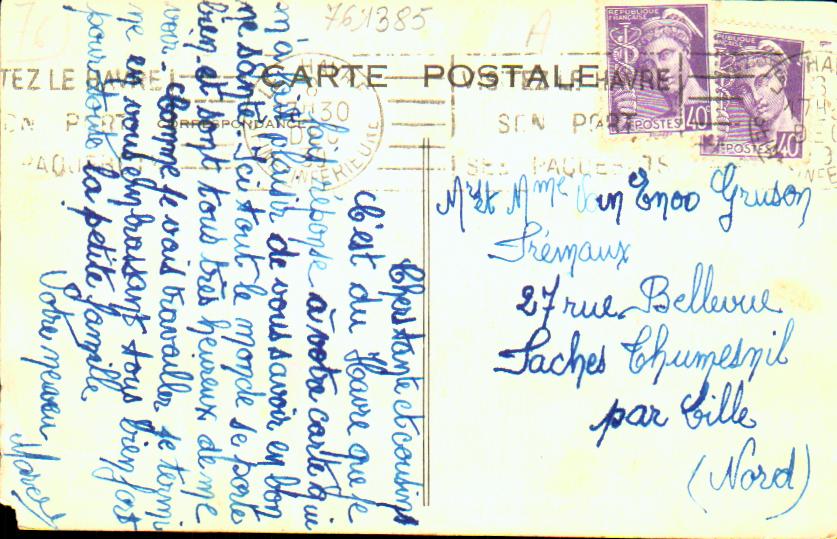 761385
A
RÉPUBLIQUE FRANÇAISE
POSTES 40c
POSTES 40c
CARTE POSTALE
CORRESPONDANCE
TEZ LE HAVRE
SON PORT
PAQUEB
VISITEZ LE HAVRE
SON PORT
SES PAQUEBOTS
Chers tante et cousins
C'est du Havre que je
fait réponse à votre carte qui
m'a fait plaisir de vous savoir en bon
ne santé. Ici tout le monde se porte
bien et sont tous très heureux de me
voir. Comme je vais travailler je termi
ne en vous embrassant tous bien fort
pour toute la petite famille
Votre neveu
Marcel
Mr et Mme Van Enoo Gruson
Trémaux
27 rue Bellevue
Faches Thumesnil
par Lille
(Nord)